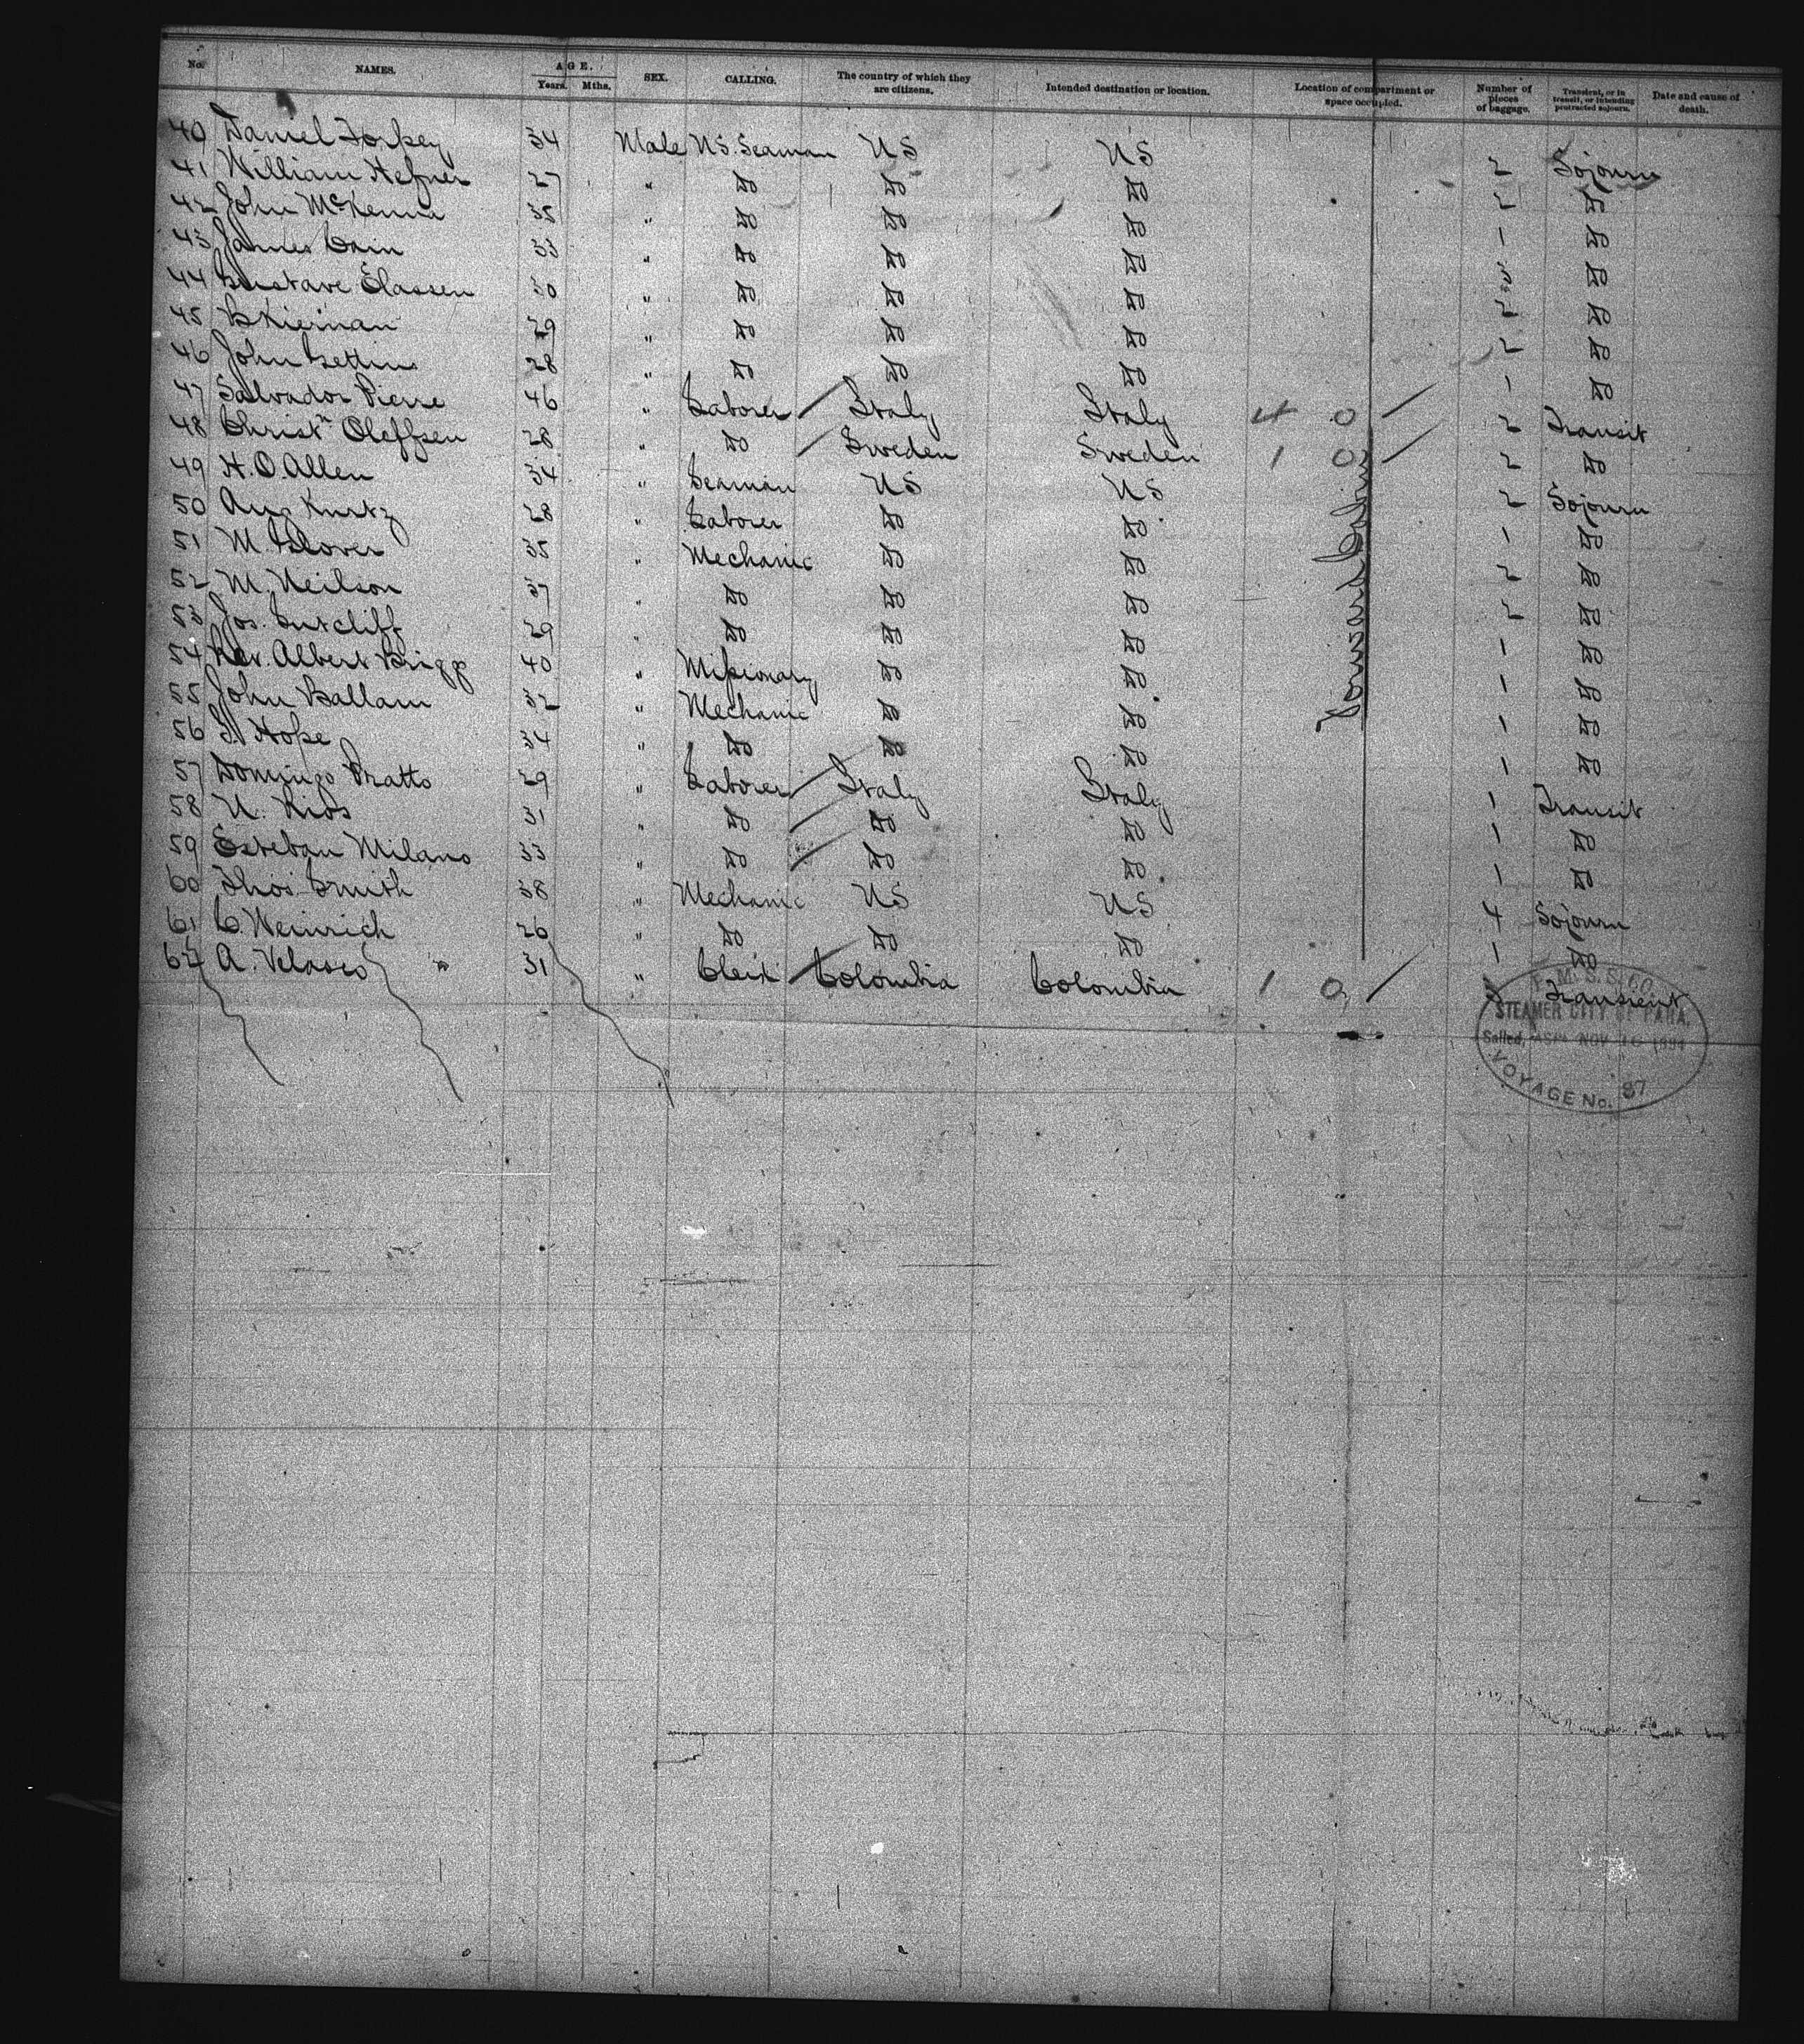 No. NAMES. AGE. Years. Mths. SEX. CALLING. The country of which they are citizens. Intended destination or location. Location of compartment or space occupied. Number of pieces of baggage. Transient, or in transit, or intending protracted sojourn. Date and cause of death.
40 Daniel Torpey 34 Male U.S. Seaman US US 2 Sojourn
41 William Hefner 27 " Do Do Do 2 Do
42 John McKenna 35 " Do Do Do 1 Do
43 James Cain 33 " Do Do Do 3 Do
44 Gustave Classen 30 " Do Do Do 2 Do
45 B Kiernan 29 " Do Do Do 2 Do
46 John 28 " Do Do Do 1 Do
47 Salvador Pierre 46 " Laborer Italy Italy 4 0 2 Transit
48 Christn Oleffsen 28 " Do Sweden Sweden 1 0 2 Do
49 H. O. Allen 34 " Seaman US US 2 Sojourn
50 Aug Kurtz 28 " Laborer Do Do 1 Do
51 M. Glover 35 " Mechanic Do Do 2 Do
52 M. Neilson 37 " Do Do Do 2 Do
53 Jos. Sutcliff 29 " Do Do Do 1 Do
54 Rev. Albert Brigg 40 " Missionary Do Do 1 Do
55 John Ballam 32 " Mechanic Do Do 1 Do
56 Hope 34 " Do Do Do 1 Do
57 Domingo Pratto 29 " Laborer Italy Italy 1 Transit
58 N. Rios 31 " Do Do Do 1 Do
59 Esteban Milano 33 " Do Do Do 1 Do
60 Thos Smith 38 " Mechanic US US 4 Sojourn
61 C. Weinrich 26 " Do Do Do 1 Do
62 A. Velasco " 31 " Clerk Colombia Colombia 1 0 Transient
Forward Cabin
P. M. S. S. CO.
STEAMER CITY OF PARA.
Sailed, NOV 1894
VOYAGE No. 87